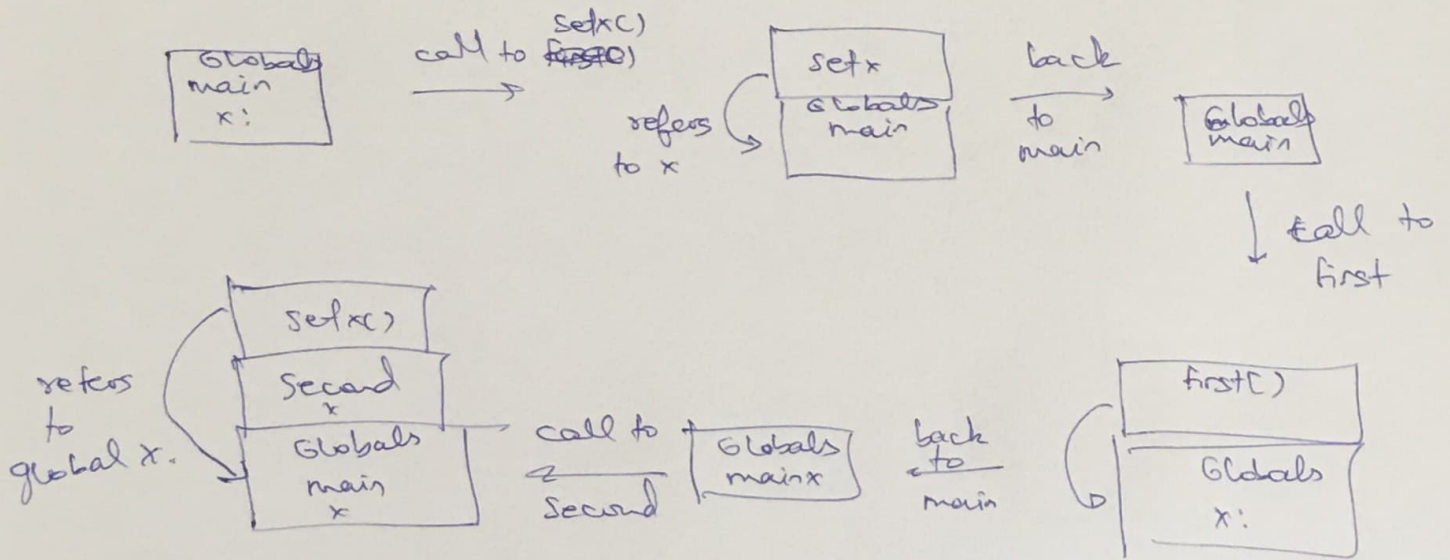 Globals
main
x:
call to setx()
setx
Globals
main
refers
to x
back
to
main
Globals
main
call to
first
first()
Globals
x:
back
to
main
Globals
main x
call to
second
setx()
Second
x
Globals
main
x
refers
to
global x.